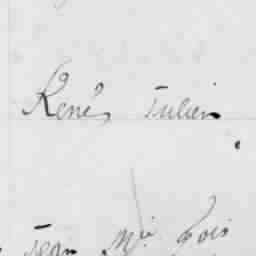 René Julien
Jean Mie